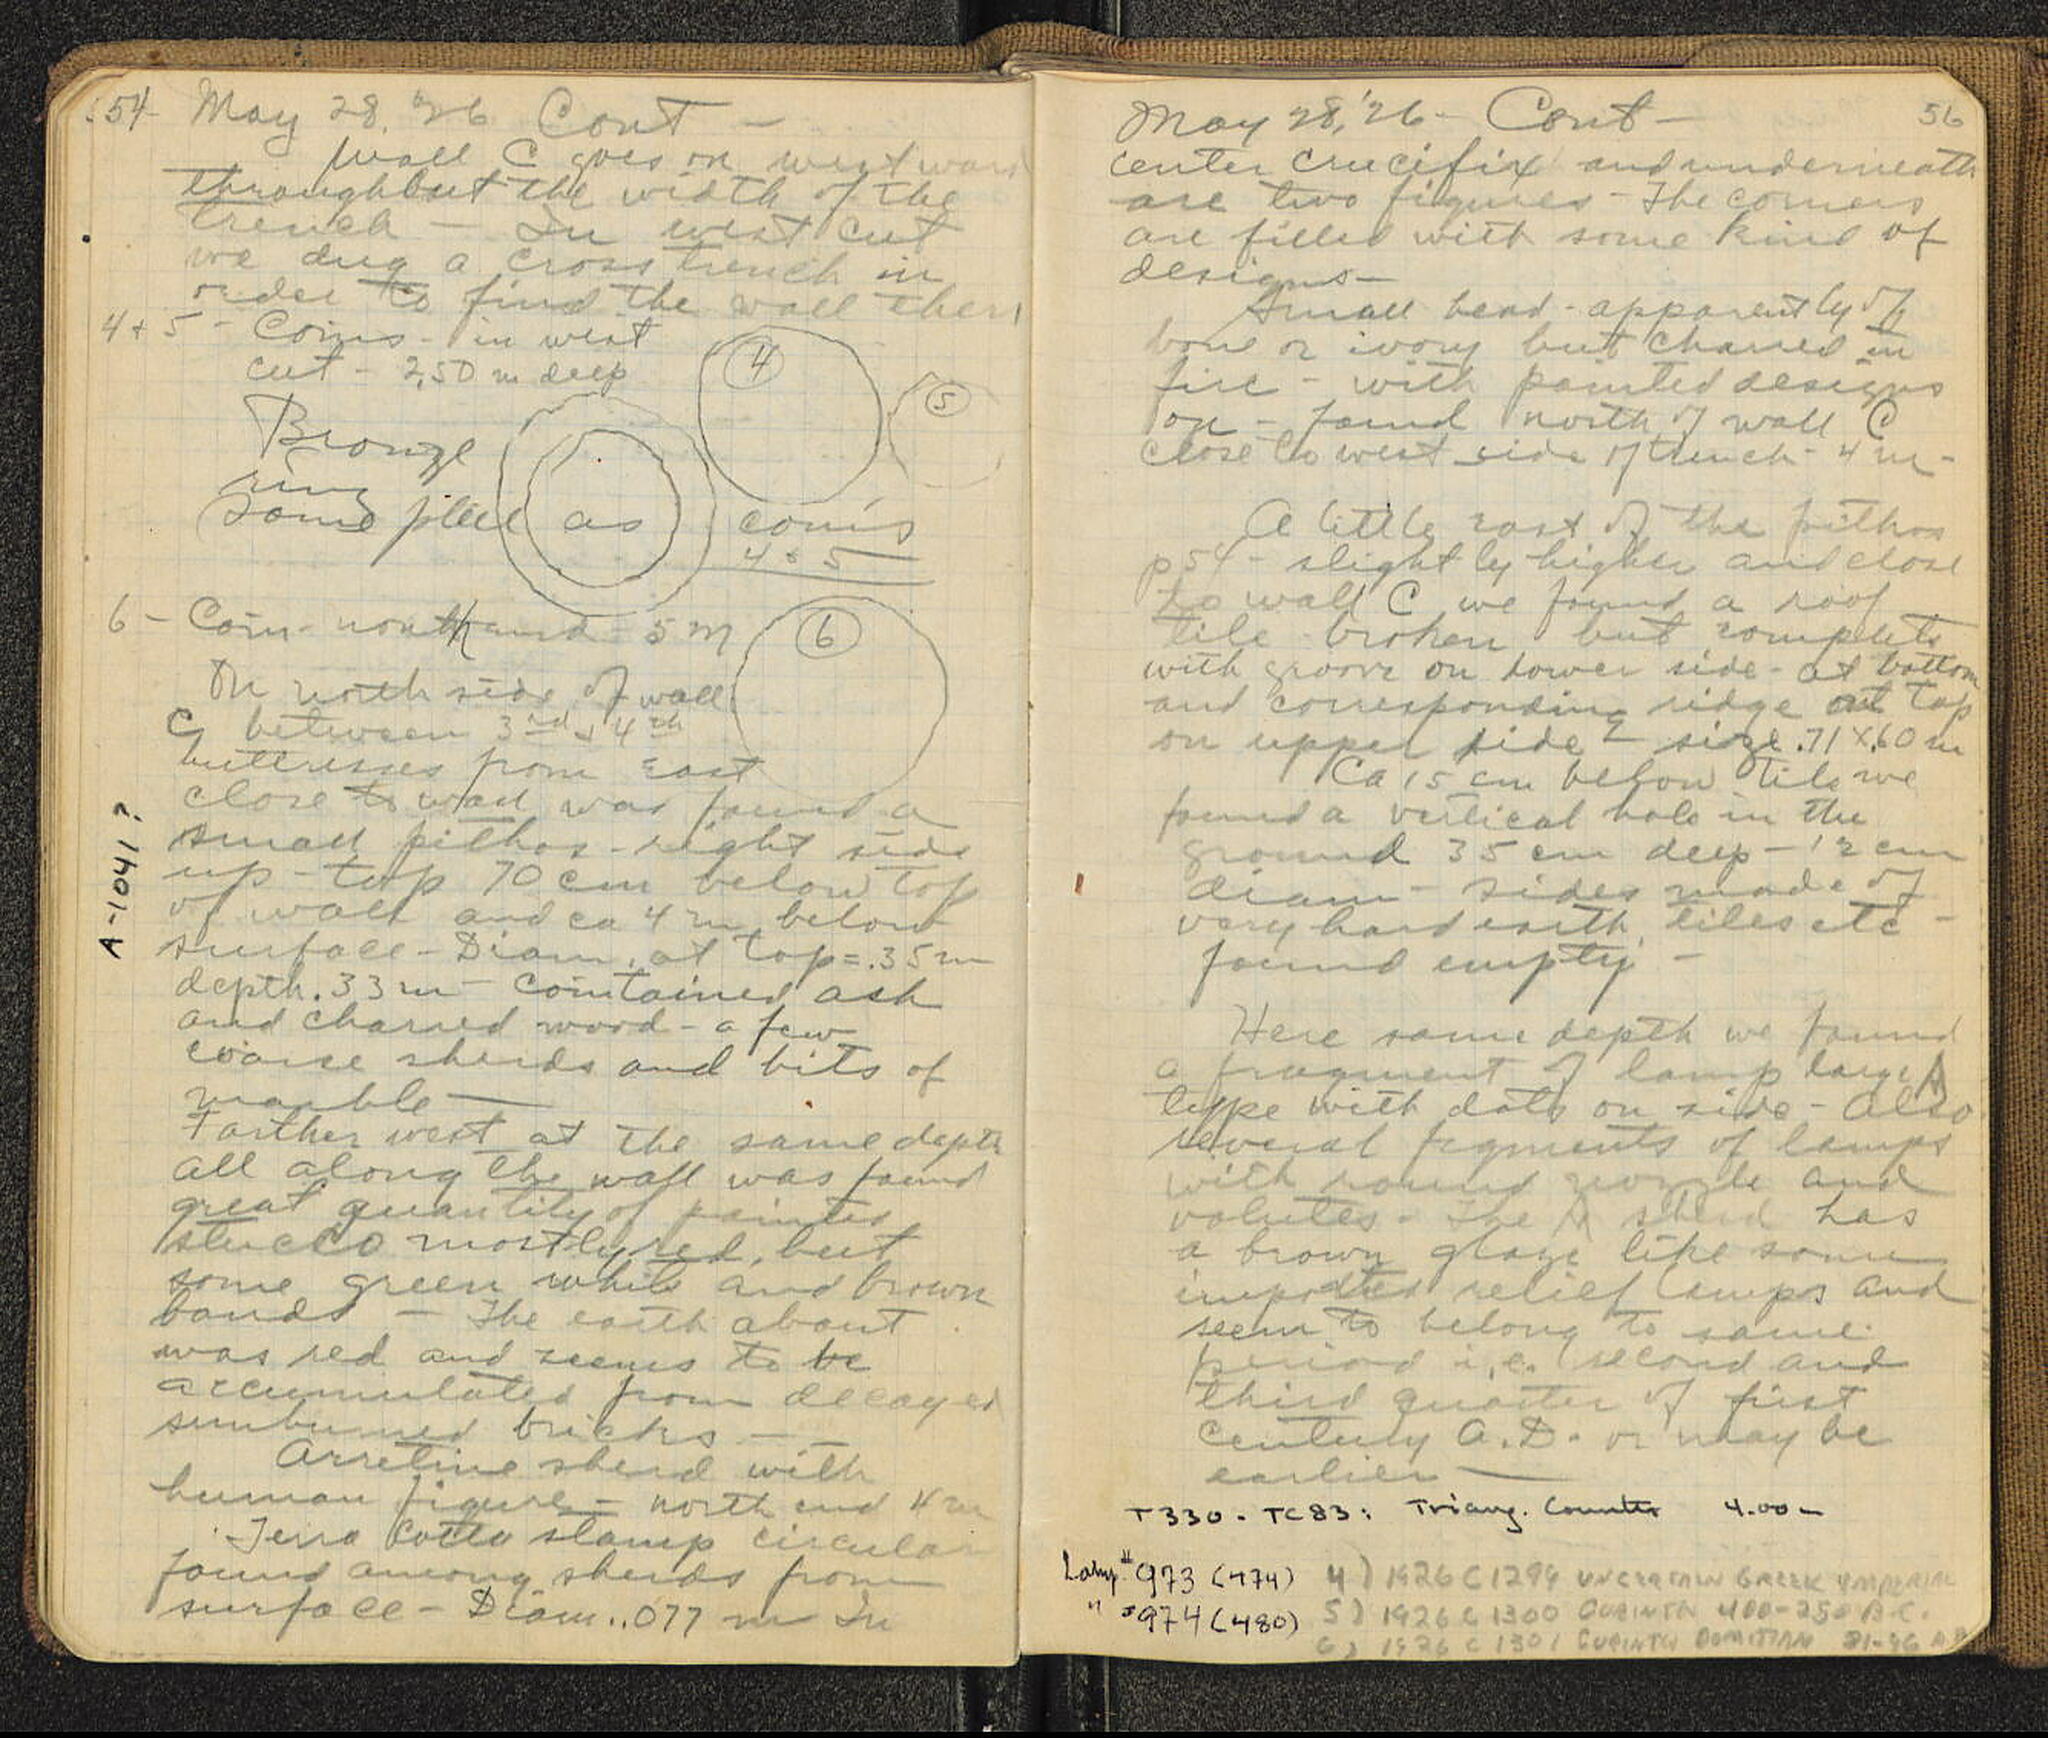 54 May 28, '26 Cont —
Wall C goes on westward
throughout the width of the
trench — In west cut
we dug a cross trench in
order to find the wall there
4 + 5 - Coins - in west
cut - 2,50 m deep
4
5
Bronze
ring
Same place as coins
4 & 5
6 - Coin - north end 5 m
6
On north side of wall
C between 3rd & 4th
buttresses from east
close to wall was found a
small pithos - right side
up - top 70 cm below top
of wall and ca 4 m below
surface - Diam. at top = .35 m
depth .33 m - contained ash
and charred wood - a few
coarse sherds and bits of
marble —
A-1041?
Farther west at the same depth
all along the wall was found
great quantity of painted
stucco mostly red, but
some green white and brown
bands — The earth about
was red and seems to be
accumulated from decayed
sunburned bricks —
Arretine sherd with
human figure - north end 4 m
Terra Cotta stamp circular
found among sherds from
surface - Diam. .077 m In
May 28, '26 - Cont — 56
center crucifix and underneath
are two figures - The corners
are filled with some kind of
designs —
Small bead - apparently of
bone or ivory but charred in
fire - with painted designs
on - found north of wall C
close to west side of trench - 4 m -
A little east of the pithos
p 54 - slightly higher and close
to wall C we found a roof
tile broken but complete
with groove on lower side - at bottom
and corresponding ridge at top
on upper side - size .71 x .60 m
Ca 15 cm below tile we
found a vertical hole in the
ground 35 cm deep - 12 cm
diam - sides made of
very hard earth, tiles etc -
found empty -
Here same depth we found
a fragment of lamp large A
type with dots on side - Also
several frgments of lamps
with round nozzle and
volutes - The A sherd has
a brown glaze like some
imported relief lamps and
seem to belong to same
period i.e. second and
third quarter of first
century A.D. or may be
earlier —
T330 - TC83: Triang. Counter 4.00 -
Lamp # 973 (474)
" # 974 (480)
4) 1926 C 1299 UNCERTAIN GREEK IMPERIAL
5) 1926 C 1300 CORINTH 400-250 B.C.
6) 1926 C 1301 CORINTH DOMITIAN 81-96 AD